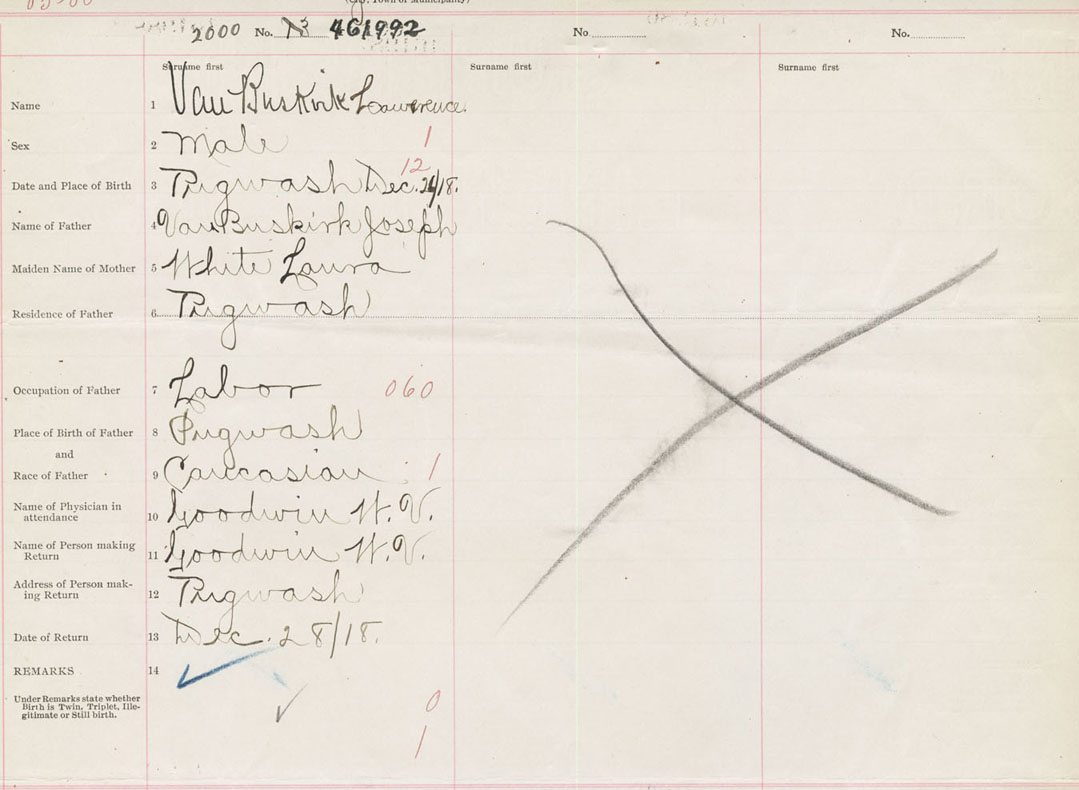 (City, Town or Municipality)
2000 No. 13 461992 No. No.
Surname first Surname first Surname first
Name 1 Van Buskirk Lawrence
Sex 2 Male 1
12
Date and Place of Birth 3 Pugwash Dec. /18.
Name of Father 4 Van Buskirk Joseph
Maiden Name of Mother 5 White Laura
Residence of Father 6 Pugwash
Occupation of Father 7 Labor 060
Place of Birth of Father 8 Pugwash
and
Race of Father 9 Caucasian 1
Name of Physician in
attendance 10 Goodwin
Name of Person making
Return 11 Goodwin
Address of Person mak-
ing Return 12 Pugwash
Date of Return 13 Dec. 28/18.
REMARKS 14
Under Remarks state whether
Birth is Twin, Triplet, Ille-
gitimate or Still birth.
0
1